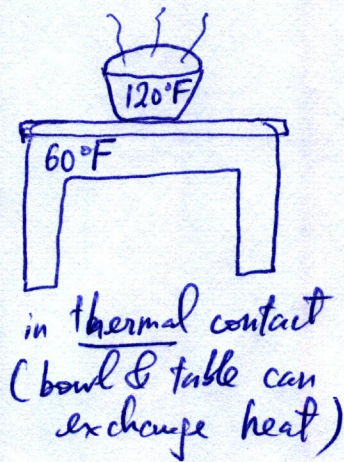 120°F
60°F
in thermal contact
(bowl & table can
exchange heat)